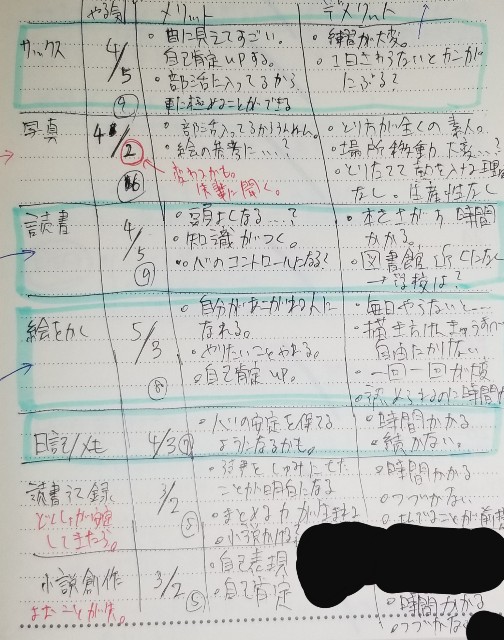 やる気 メリット デメリット
サックス
4/5
9
・目に見えてすごい。
自己肯定upする。
・部活に入ってるから
更に極めることができる
・練習が大変。
・1日さわらないとカンが
にぶる?
写真
4/2
16
・部活入ってるから
・絵の参考に…?
変わるかも。
に聞く。
・とり方が全くの素人。
・場所移動大変…?
・とりたてて力を入れる理
なし。生産性なし
読書
4/5
9
・頭よくなる…?
・知識がつく。
・心のコントロールになる?
・本をさがす時間
かかる。
・図書館近くにない
→学校は?
絵をかく
5/3
8
・自分があこがれる人に
なれる。
・やりたいことやれる。
・自己肯定up。
・毎日やらないと—
自由にかけない
・一回一回が大変
のに時間
日記/メモ
4/3 7
・心の安定を保てる
ようになるかも。
・時間かかる
・続かない。
読書記録
してきたら。
3/2
5
・読書をしゅみにした
ことが明白になる
・まとめる力が生まれる
・小説かける
・時間かかる
・つづかない
小説創作
3/2
5
・自己表現
・自己肯定
・時間かかる
・つづかない